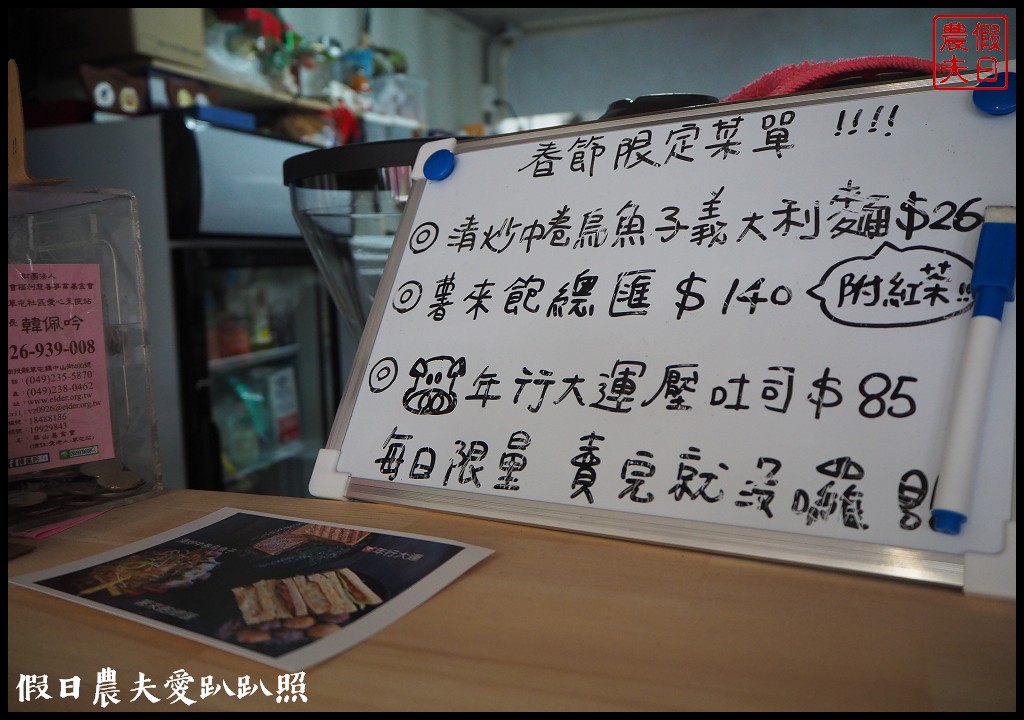 假日
農夫
春節限定菜單 !!!!
◎ 清炒中卷烏魚子義大利麵 $26
◎ 薯來飽總匯 $140 附紅茶!!
◎ 年行大運壓吐司 $85
每日限量 賣完就沒囉
財團法人
韓佩吟
26-939-008
(049)235-5870
(049)238-0462
www.elder.org.tw
vz0926@elder.org.tw
18488186
19929843
年行大運
假日農夫愛趴趴照